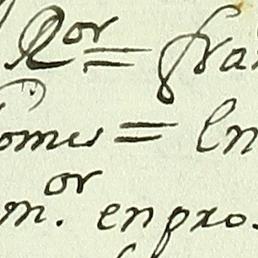 Ror = fra
omes = En
or
m. en pro.